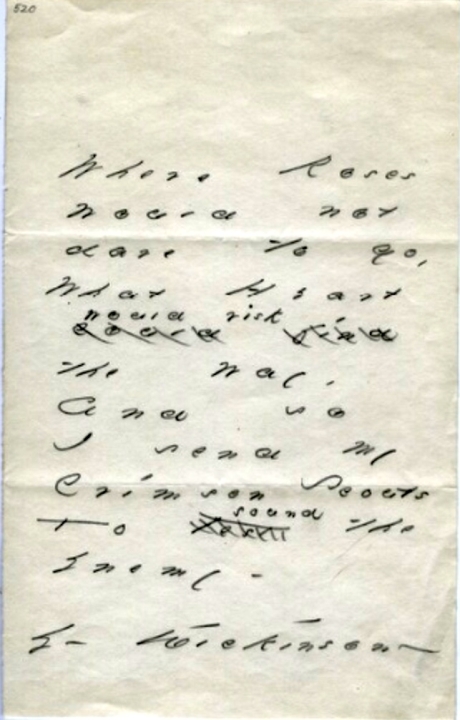 520
Where Roses
would not
dare to go,
What Heart
would risk
could find
the way,
And so
I send my
Crimson Scouts
sound
To the
Enemy -
E - Dickinson -